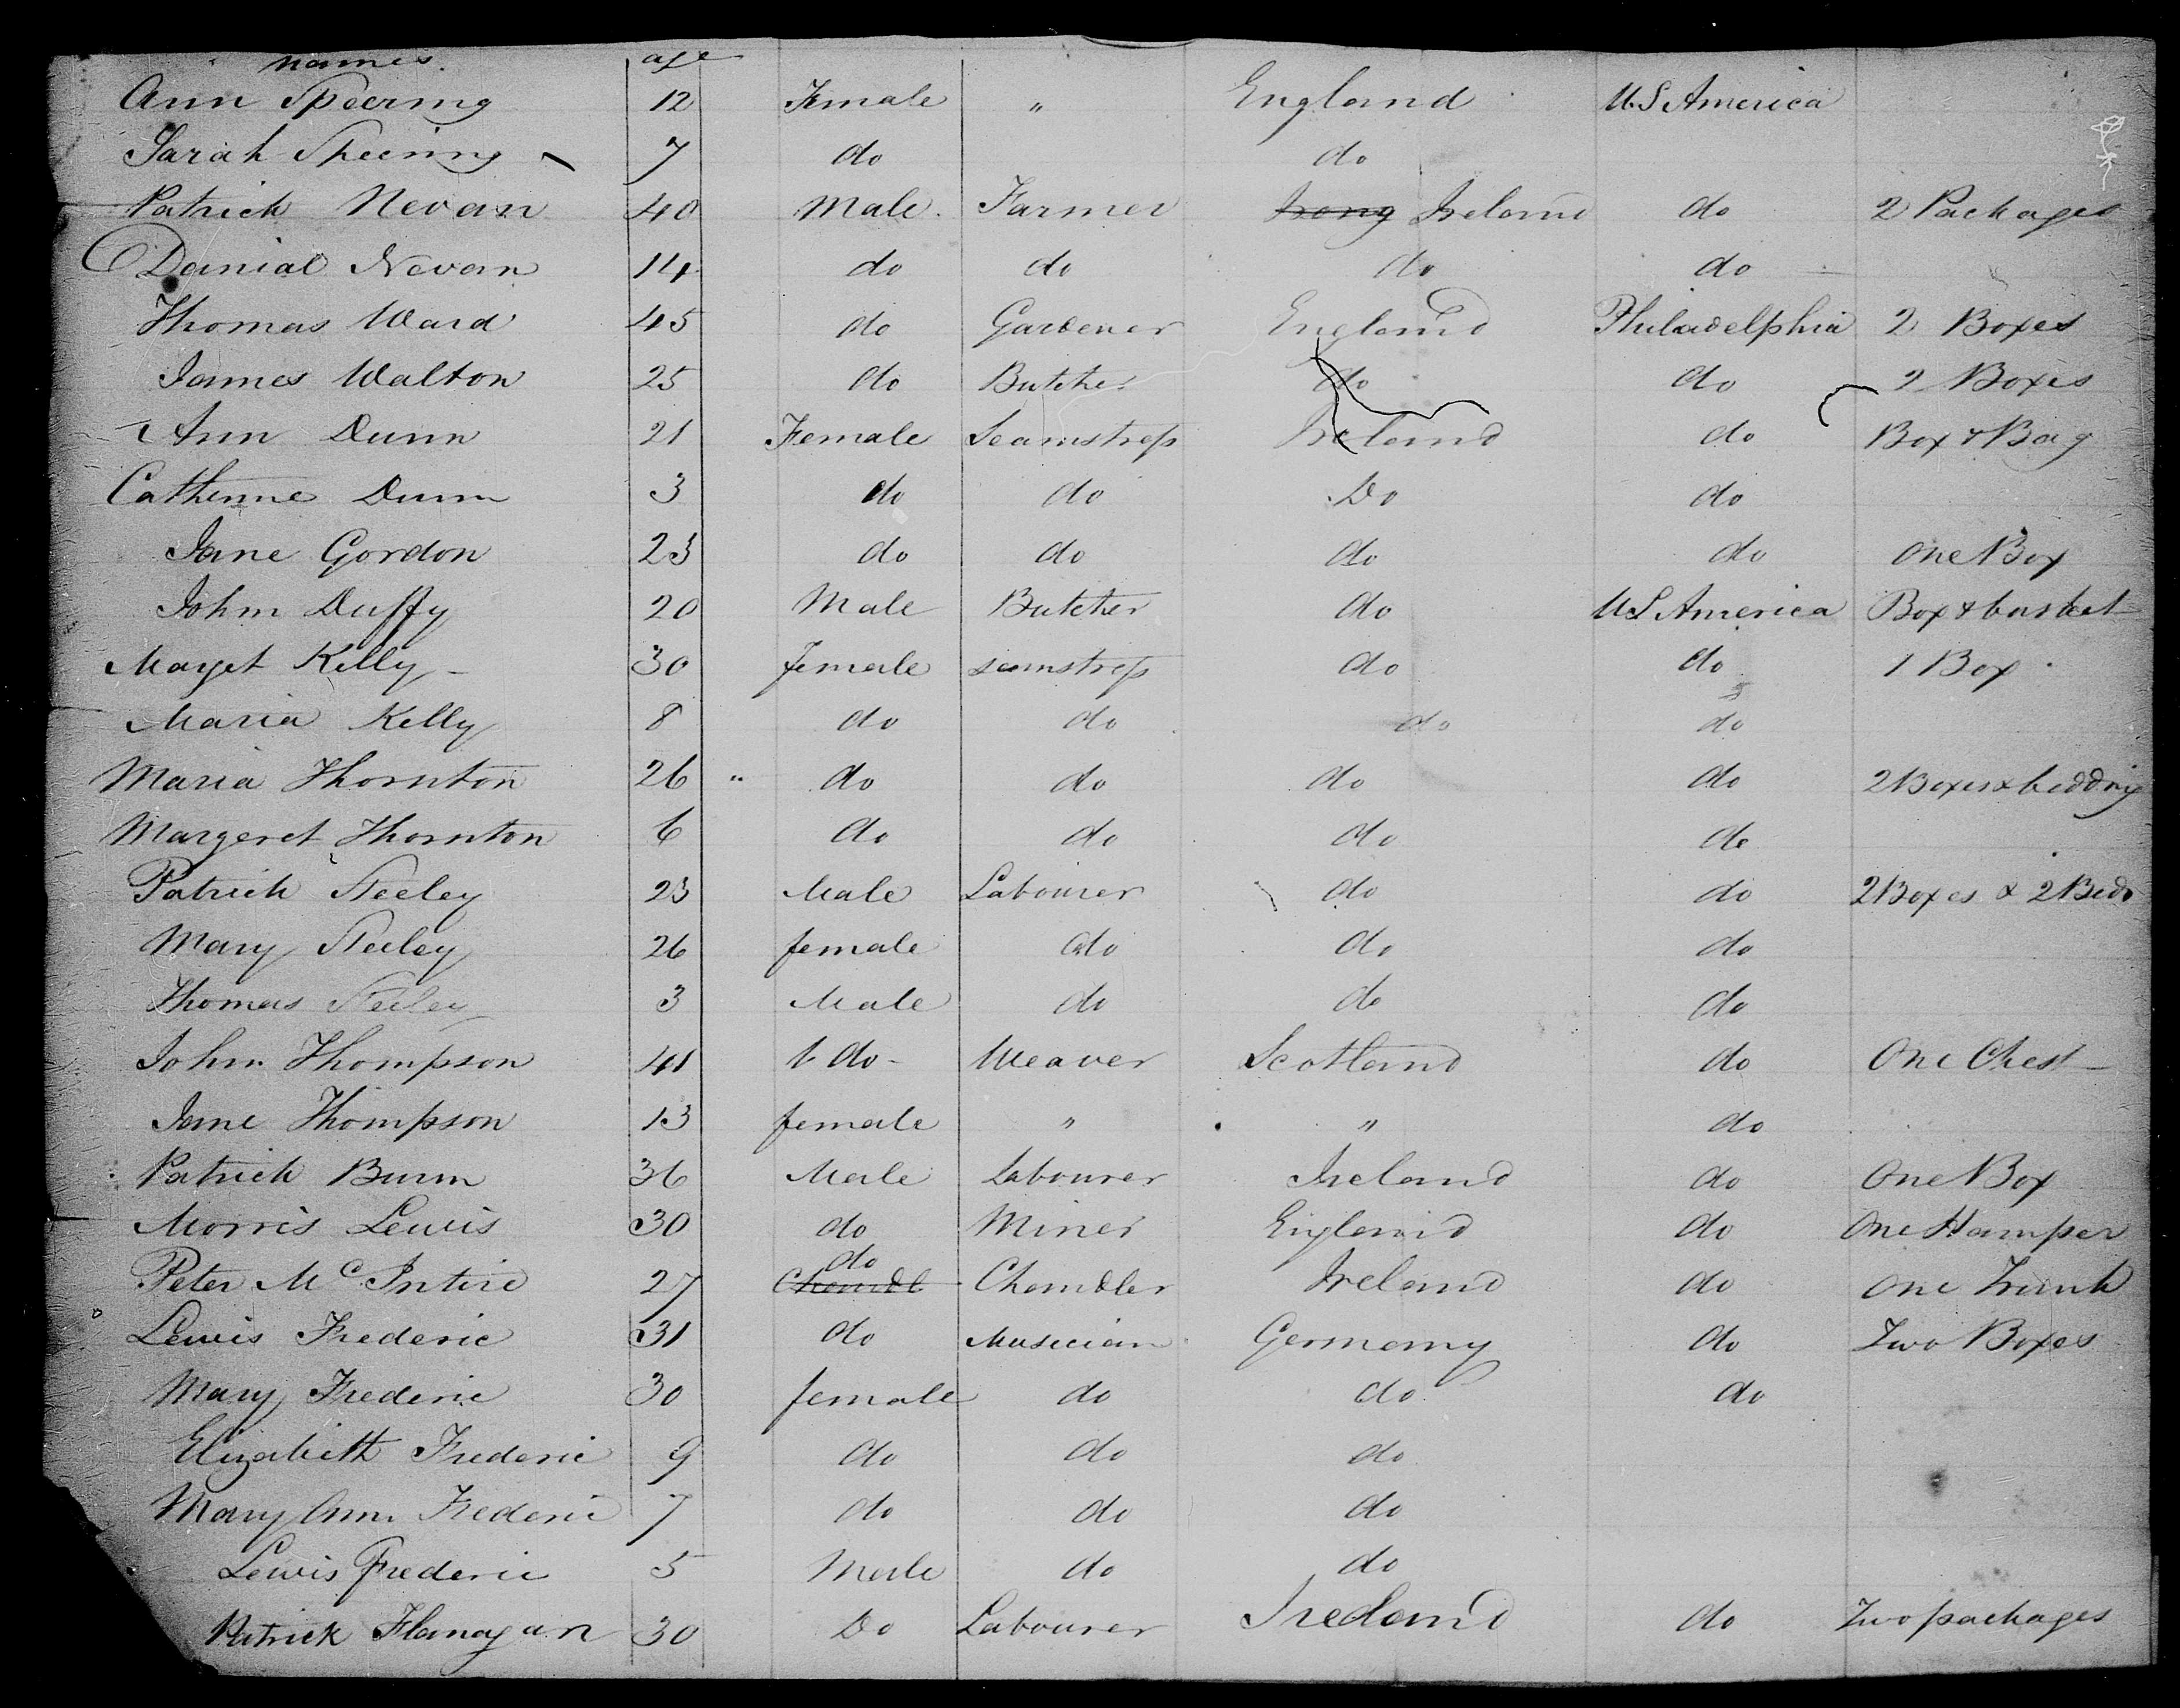 names. age
Ann Speering 12 Female " England U.S America
Sarah Speering 7 do do
Patrick Nevan 40 Male. Farmer Ireland do 2 Packages
Danial Nevan 14 do do do do
Thomas Ward 45 do Gardener England Philadelphia 2 Boxes
James Walton 25 do Butcher do do 2 Boxes
Ann Dunn 21 Female Seamstress Ireland do Box & Bag
Catherine Dunn 3 do do Do do
Jane Gordon 23 do do do do One Box
John Duffy 20 Male Butcher do US America Box & basket
Marget Kelly 30 female seamstress do do 1 Box
Maria Kelly 8 do do do do
Maria Thornton 26 " do do do do 2 Boxes & bedding
Margeret Thornton 6 do do do do
Patrick Steeley 23 Male Labourer do do 2 Boxes & 2 Beds
Mary Steeley 26 female do do do
Thomas Steeley 3 Male do do do
John Thompson 41 do Weaver Scotland do One Chest
Jane Thompson 13 female " " do
Patrick Burn 36 Male Labourer Ireland do One Box
Morris Lewis 30 do Miner England do One Hamper
do
Peter Mc Intire 27 Chandl Chandler Ireland do One Trunk
Lewis Frederic 31 do Musician Germany do Two Boxes
Mary Frederic 30 female do do do
Elizabeth Frederic 9 do do do
Mary Ann Frederic 7 do do do
Lewis Frederic 5 Male do do
Patrick Flanagan 30 Do Labourer Ireland do Two packages